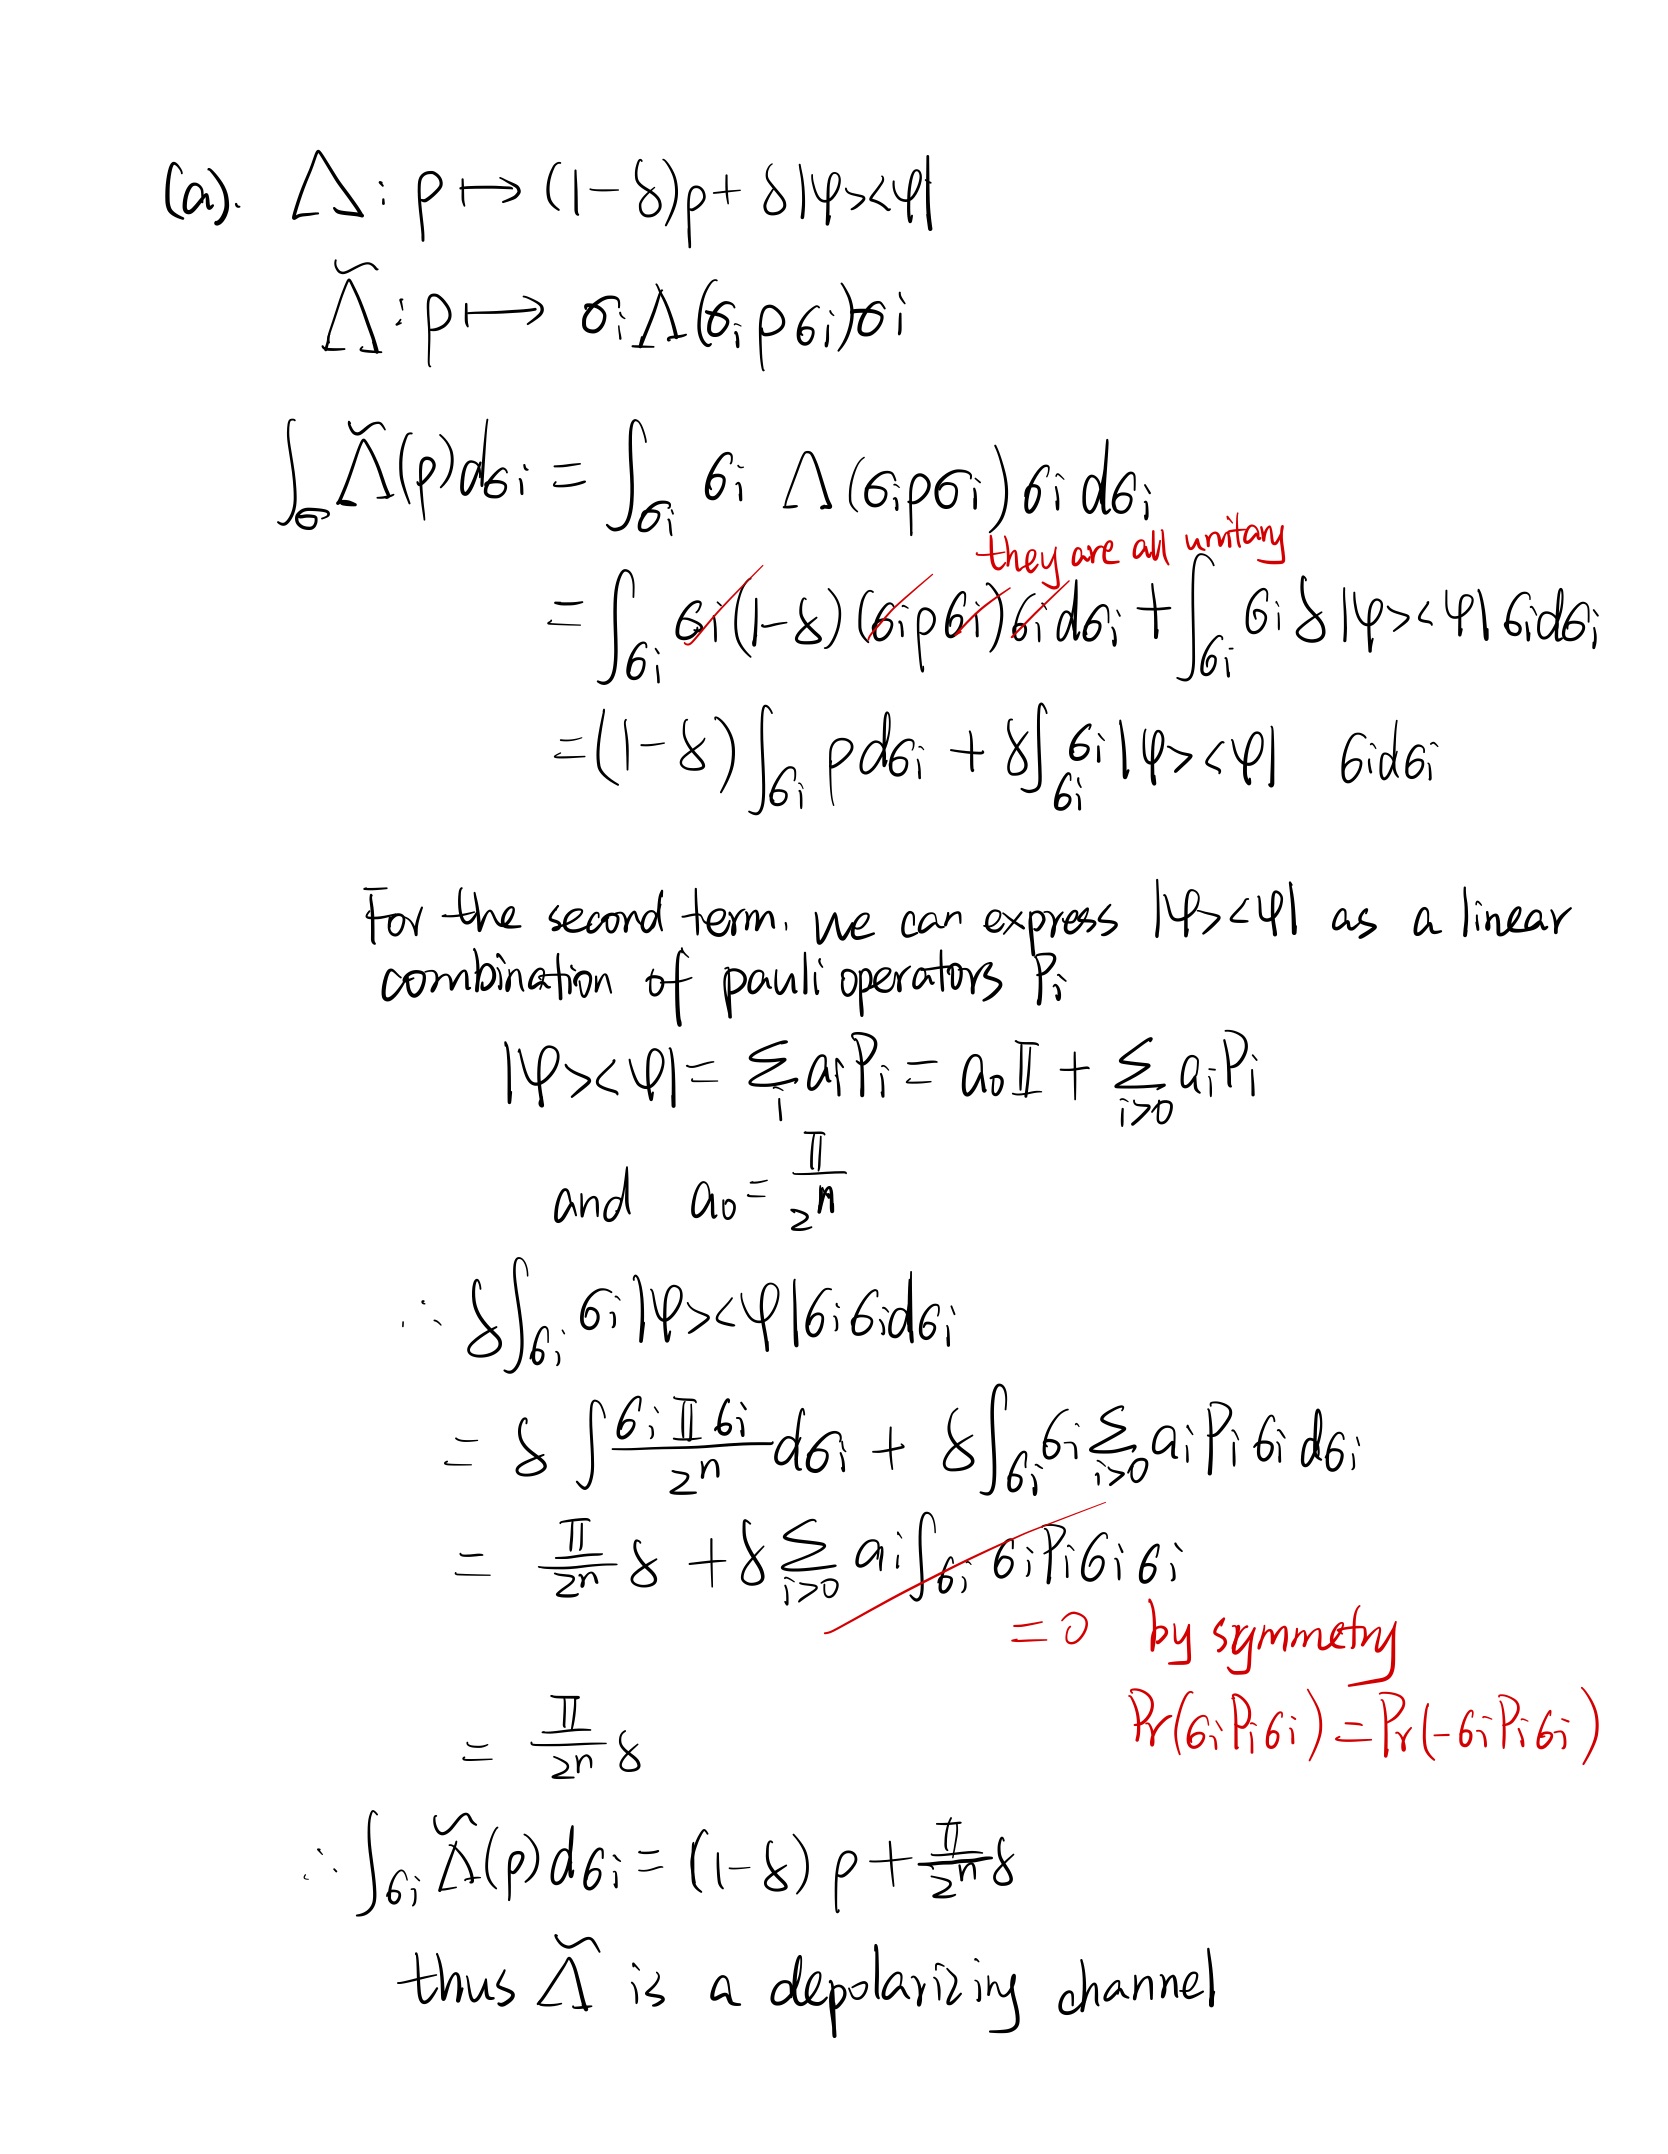 (a). Λ : ρ ↦ (1-γ)ρ + γ|φ><φ|
Λ̃ : ρ ↦ σi Λ(σi ρ σi)σi
∫_σ Λ̃(ρ)dσi = ∫_σi σi Λ(σiρσi)σi dσi
they are all unitary
= ∫_σi σi(1-γ)(σiρσi)σi dσi + ∫_σi σi γ|φ><φ| σidσi
= (1-γ)∫_σi ρdσi + γ∫_σi σi|φ><φ| σidσi
For the second term. we can express |φ><φ| as a linear
combination of pauli operators Pi
|φ><φ| = Σ_i aiPi = a0𝕀 + Σ_{i>0} aiPi
and a0 = 𝕀/2^n
∴ γ∫_σi σi|φ><φ|σiσidσi
= γ ∫ (σi𝕀σi)/2^n dσi + γ∫_σi σi Σ_{i>0} aiPiσi dσi
= 𝕀/2^n γ + γ Σ_{i>0} ai∫_σi σiPiσiσi
= 0 by symmetry
Pr(σiPiσi) = Pr(-σiPiσi)
= 𝕀/2^n γ
∴ ∫_σi Λ̃(ρ)dσi = (1-γ)ρ + 𝕀/2^n γ
thus Λ̃ is a depolarizing channel